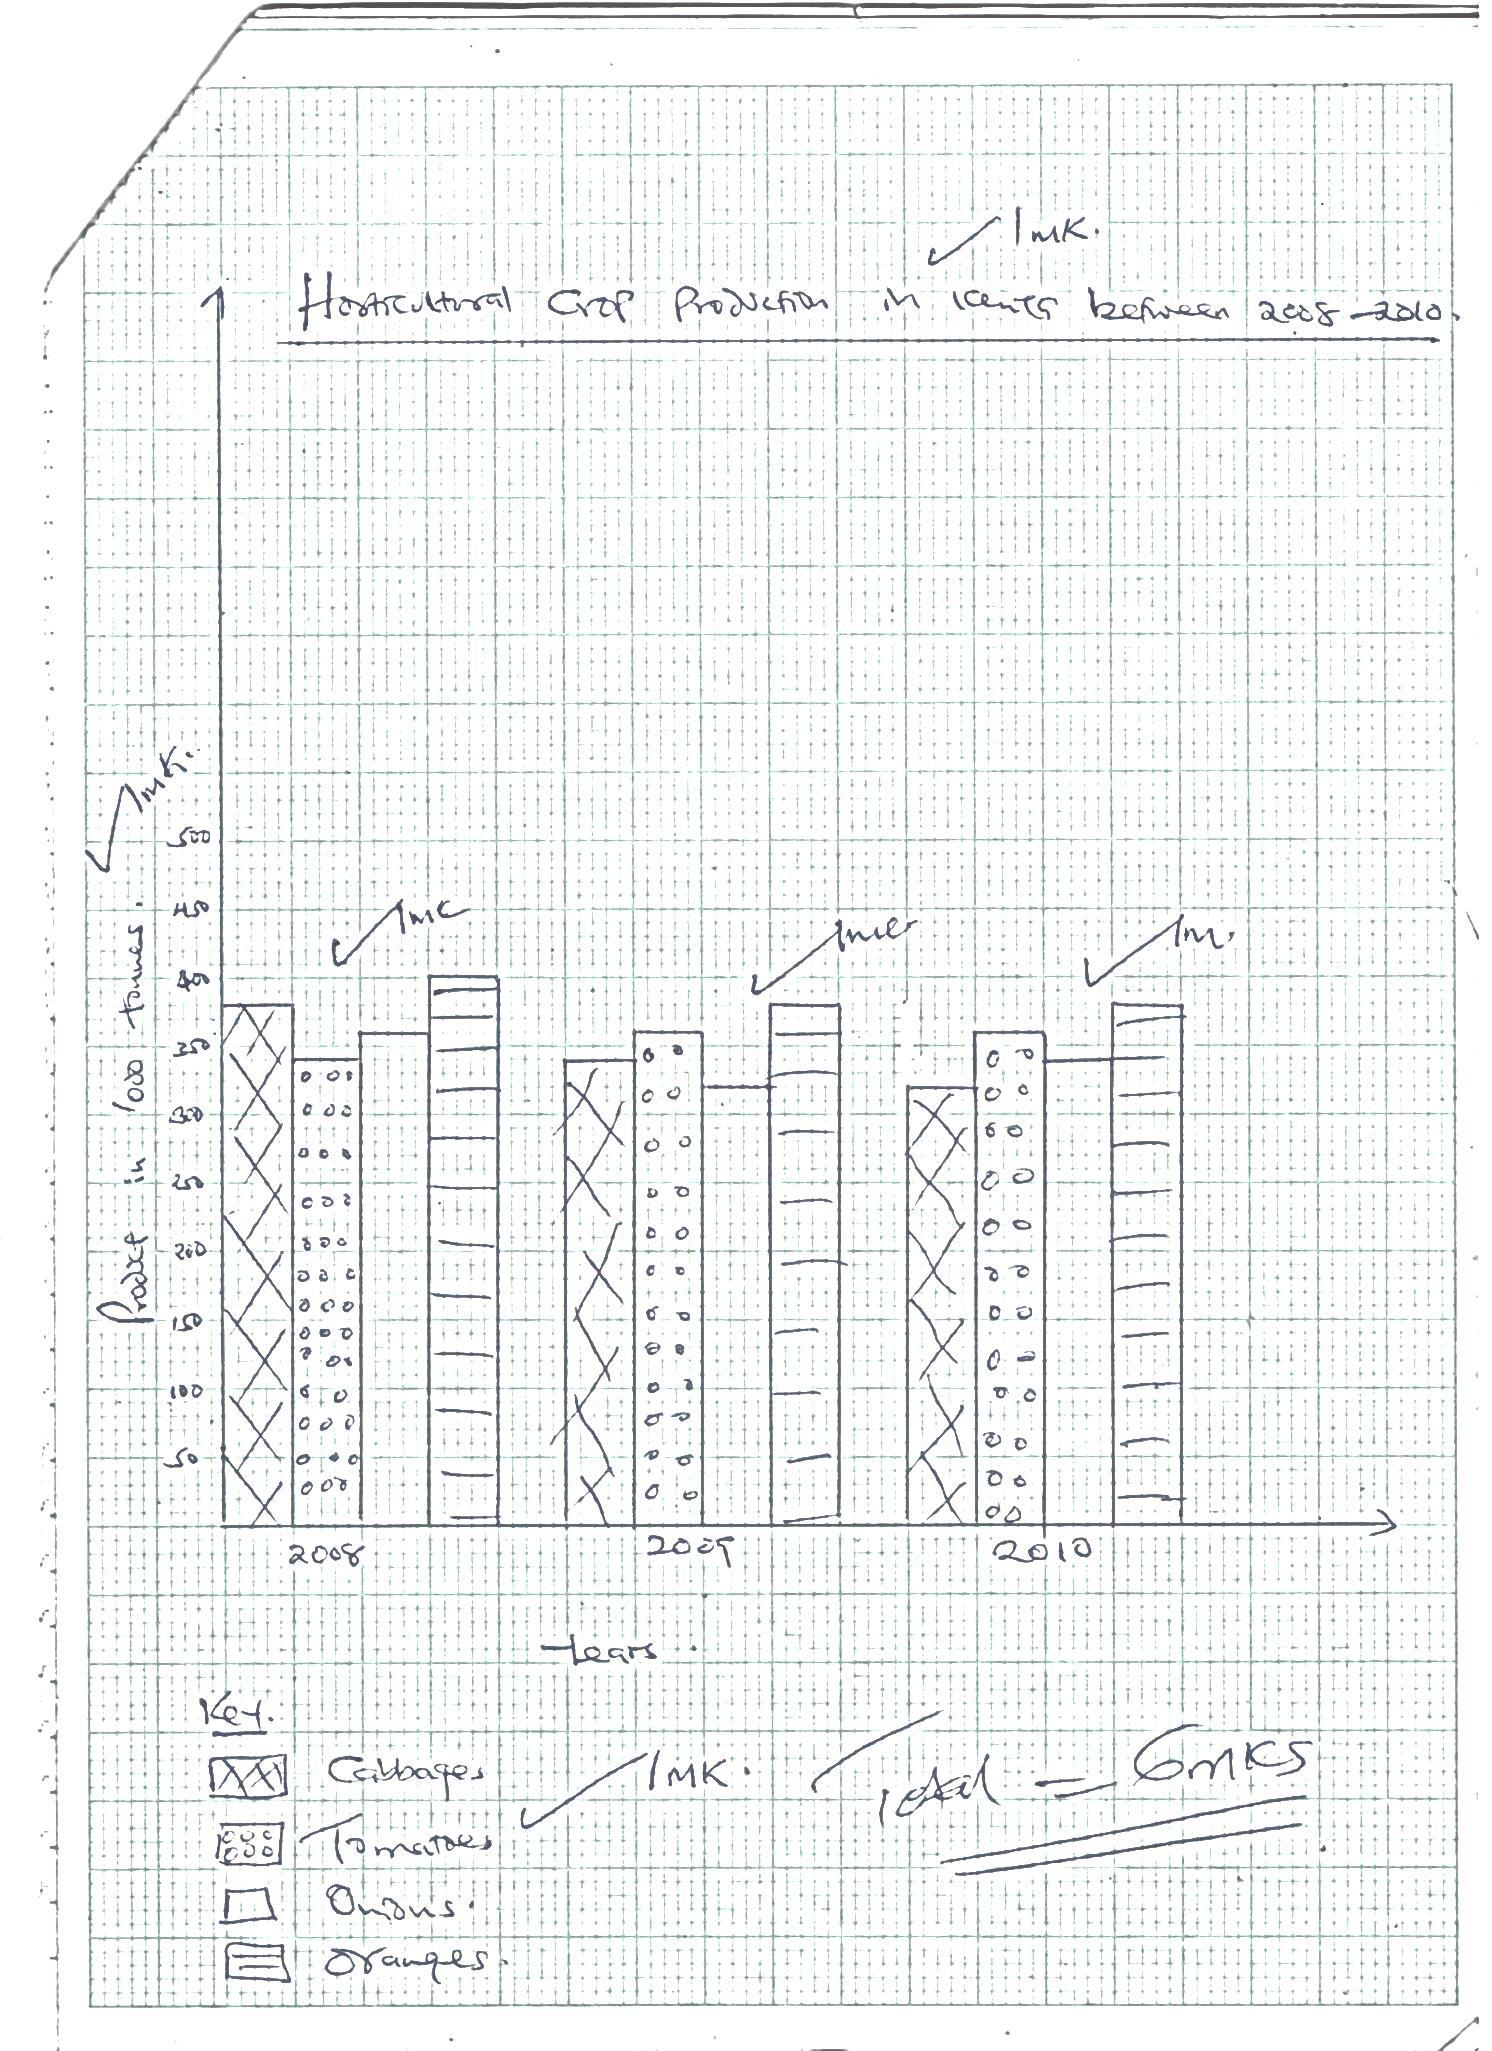 ✓ 1mk.
Horticultural Crop Production in Kenya between 2008-2010.
✓ 1mk.
Product in '000 tonnes.
500
450
400
350
300
250
200
150
100
50
✓ 1mk
✓ 1mk
✓ 1m.
2008 2009 2010
Years
Key.
Cabbages
Tomatoes
Onions.
Oranges.
✓ 1mk.
Total = 6mks